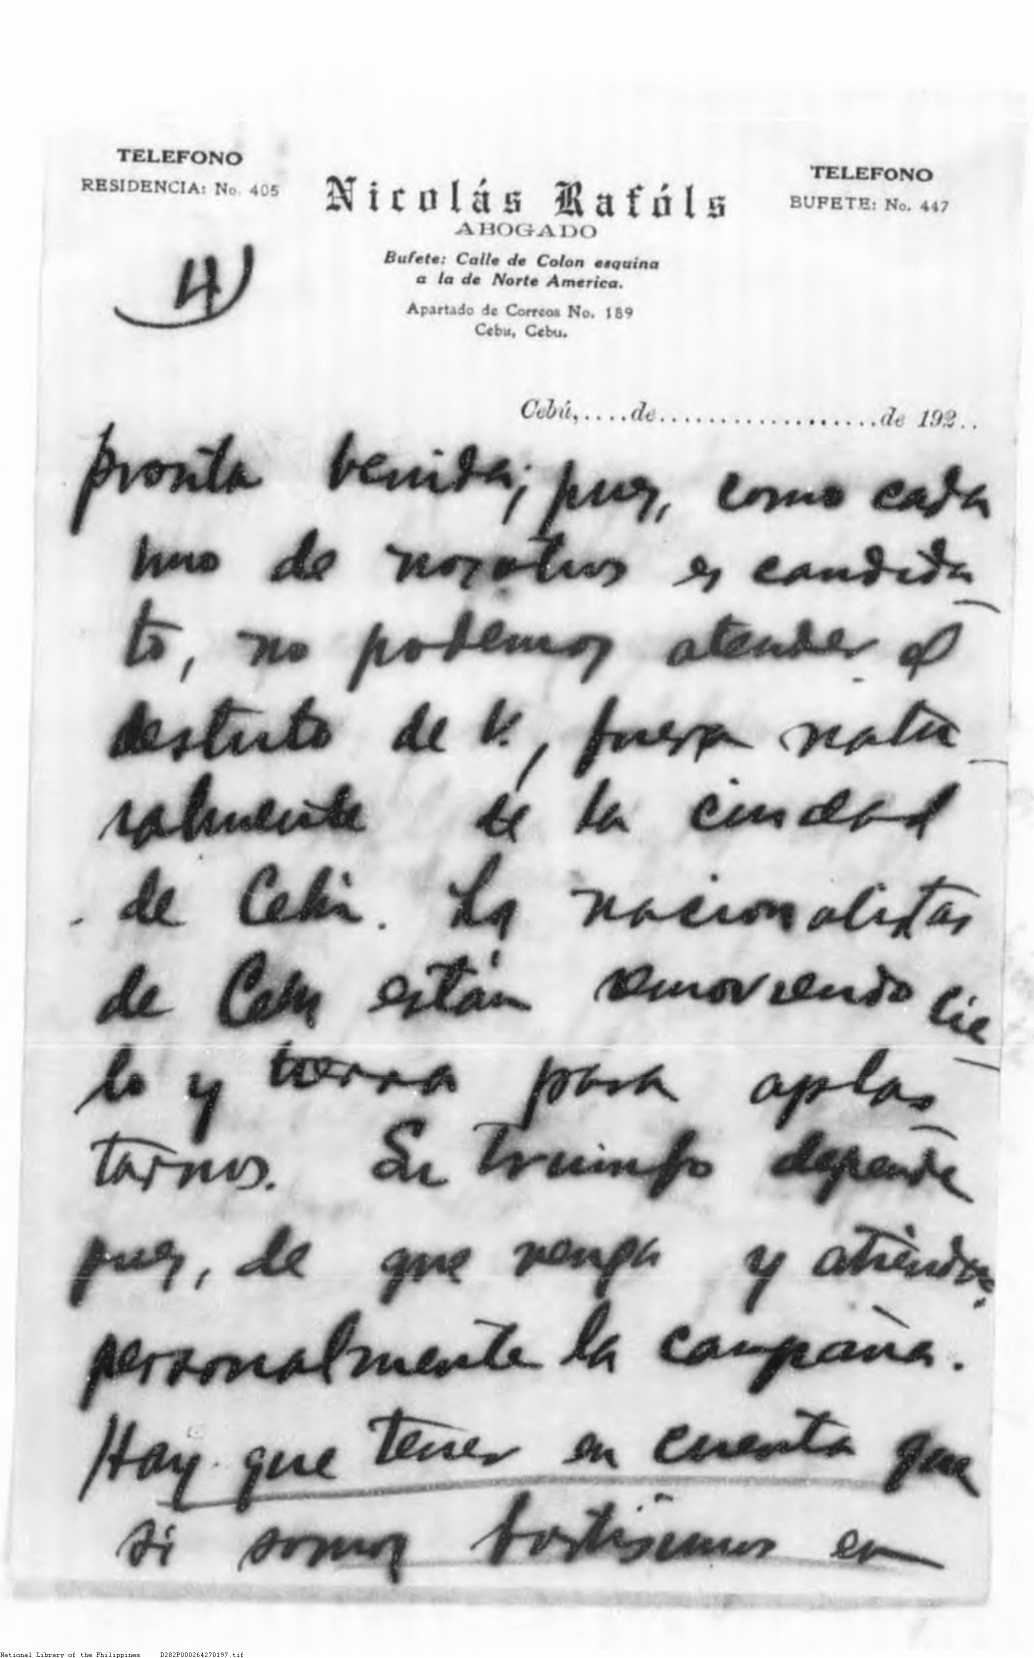 TELEFONO
RESIDENCIA: No. 405
Nicolás Rafóls
ABOGADO
Bufete: Calle de Colon esquina
a la de Norte America.
Apartado de Correos No. 189
Cebu, Cebu.
TELEFONO
BUFETE: No. 447
4)
Cebú,....de..................de 192..
pronta venida; pues, como cada
uno de nosotros es candida-
to, no podemos atender el
distrito de V., fuera natu-
ralmente de la ciudad
de Cebú. Los nacionalistas
de Cebu están removiendo cie-
lo y tierra para aplas-
tarnos. Su triunfo depende
pues, de que venga y atienda
personalmente la campaña.
Hay que tener en cuenta que
si somos fortisimos en
National Library of the Philippines D282P000264270197.tif